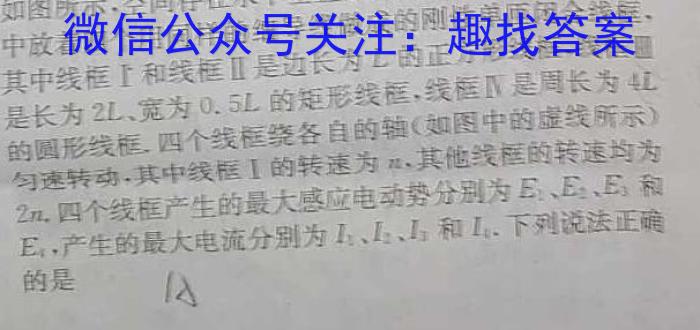 如图所示,空间存在水平
微信公众号关注：趣找答案
中放着 的刚性单匝闭合线框,
其中线框Ⅰ和线框Ⅱ是边长为L的正方形
是长为2L、宽为0.5L的矩形线框,线框Ⅳ是周长为4L
的圆形线框.四个线框绕各自的轴(如图中的虚线所示)
匀速转动,其中线框Ⅰ的转速为n,其他线框的转速均为
2n.四个线框产生的最大感应电动势分别为E₁、E₂、E₃和
E₄,产生的最大电流分别为I₁、I₂、I₃和I₄.下列说法正确
的是